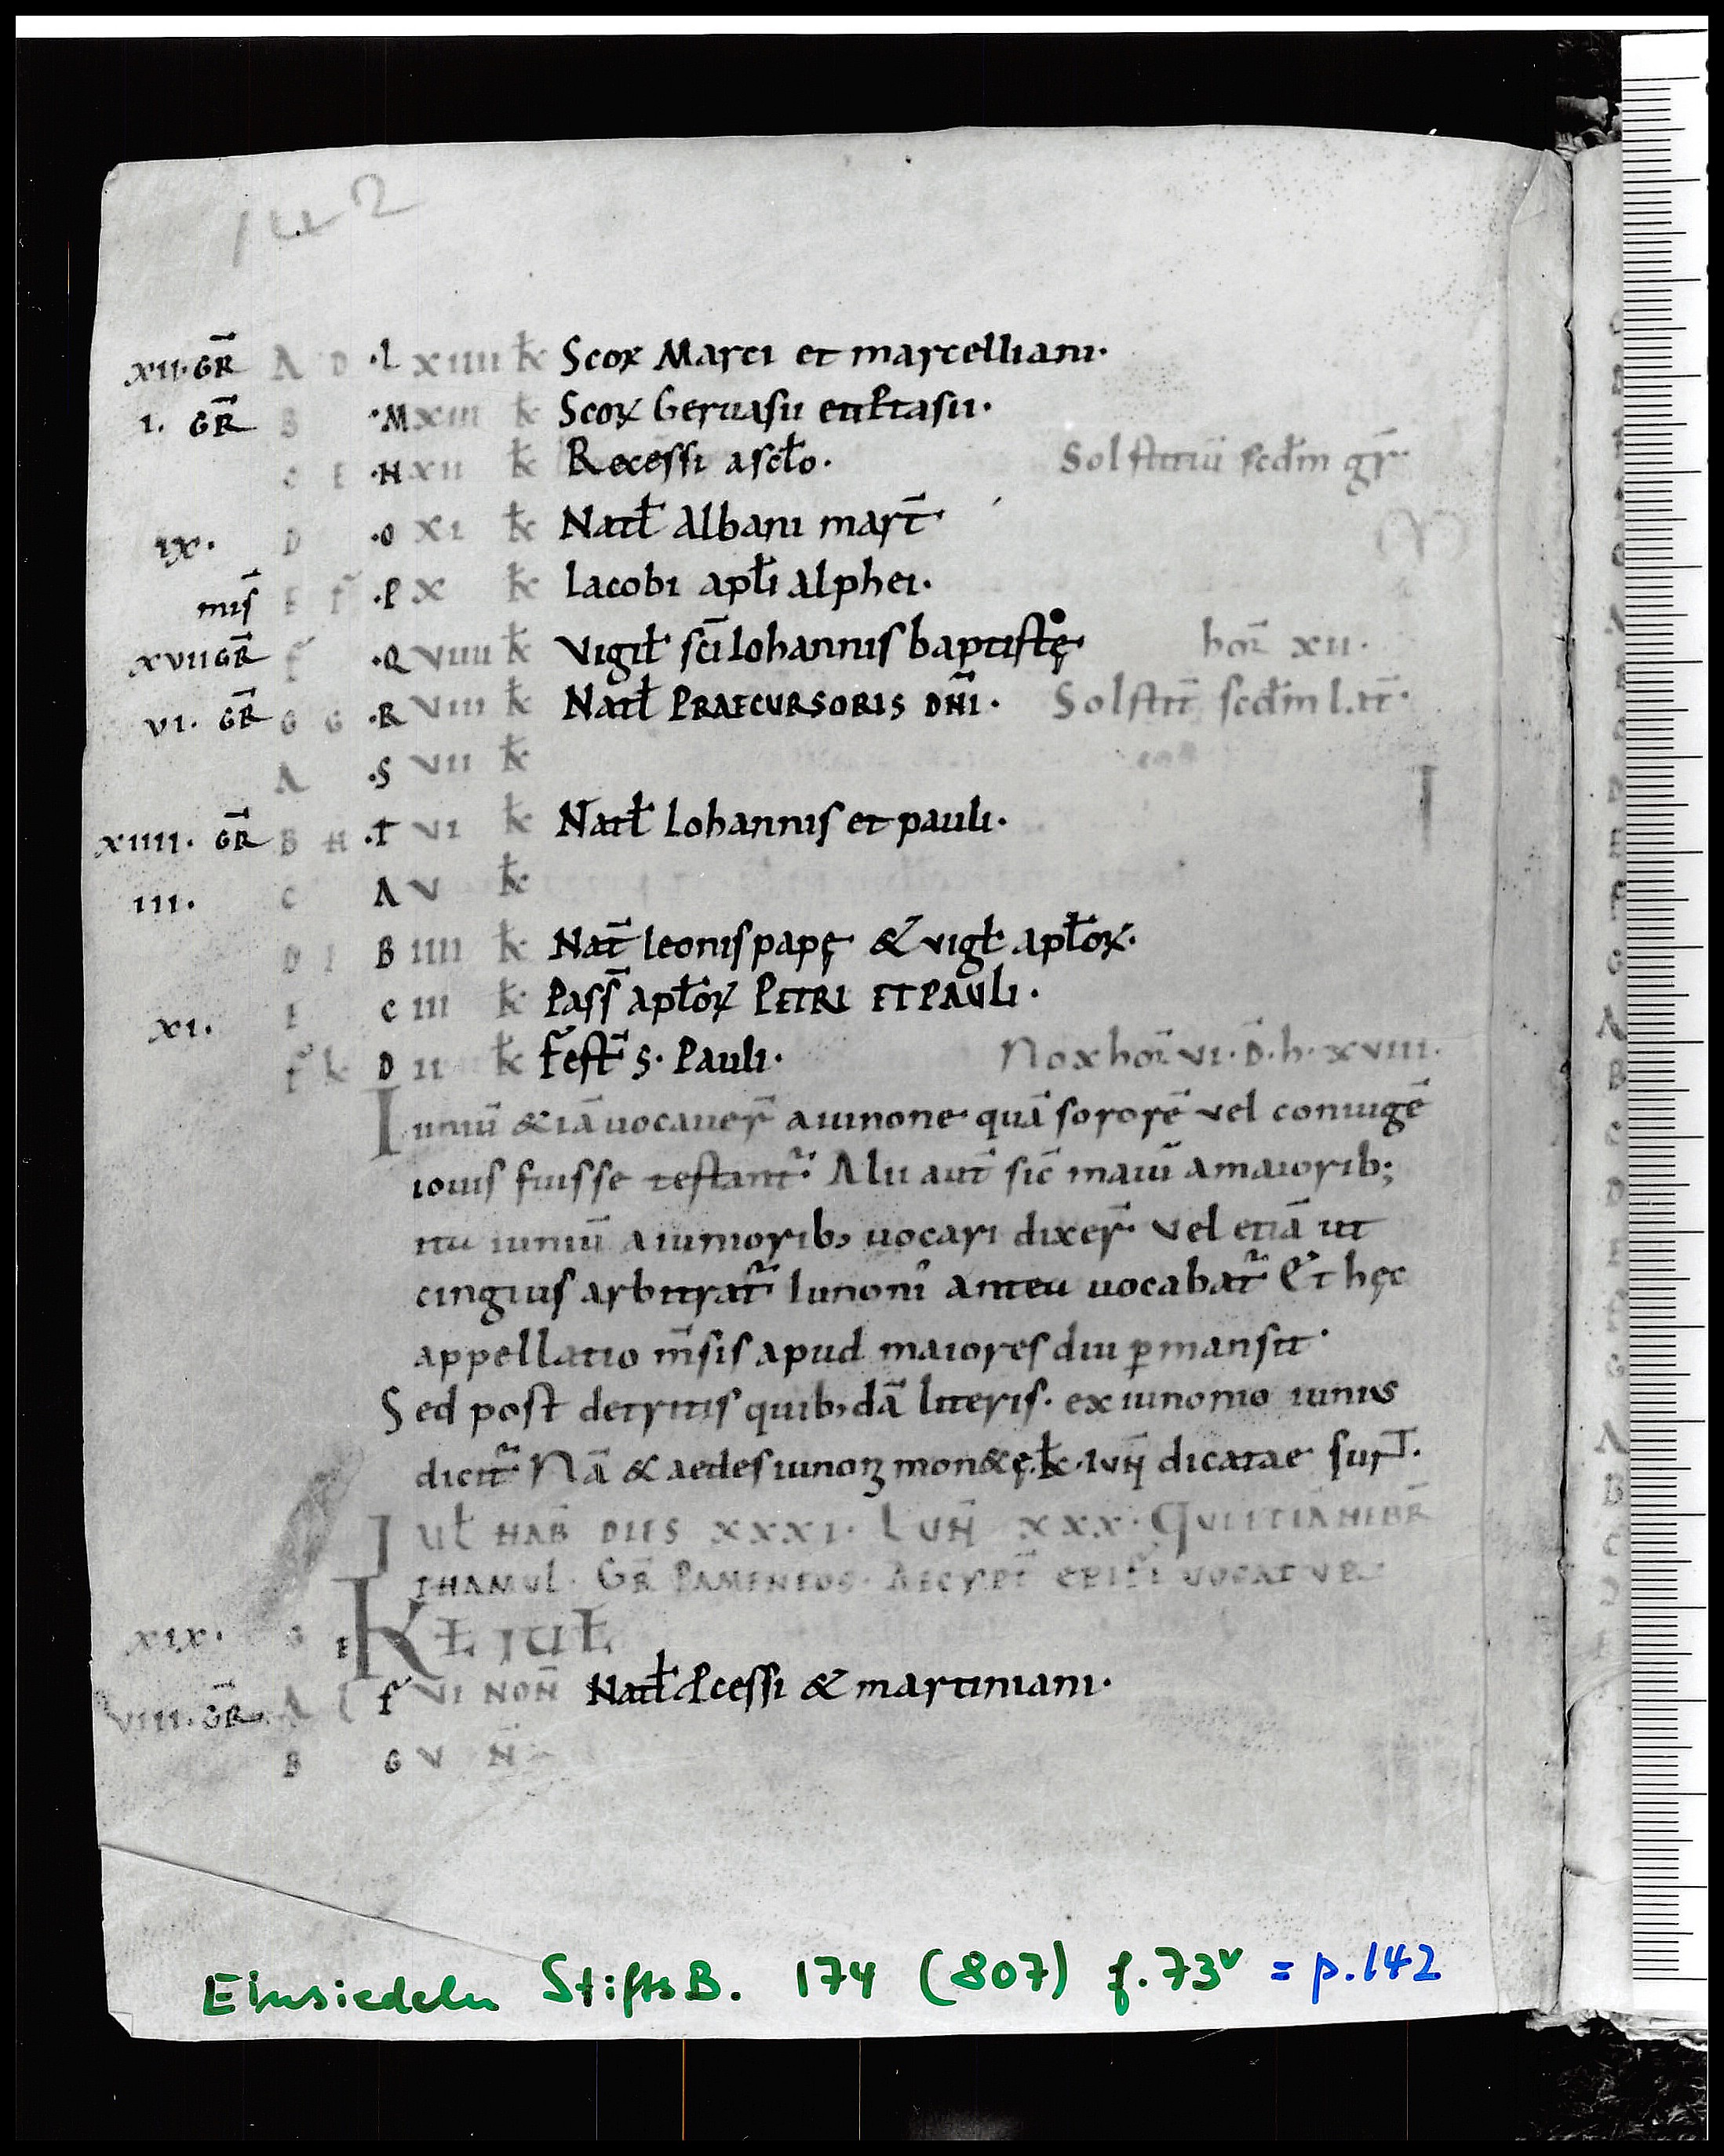 142
XII. GR̄ A D ·L XIIII k̄ Scoꝝ Marci et marcelliani·
I. GR̄ B ·M XIII k̄ Scoꝝ Geruasii
C E ·N XII k̄ Recessi ascłto· Solstitiū scdm̄ gr̄
IX. D ·O XI k̄ Natł Albani mart̄
mis̄ E F ·P X k̄ Iacobi apłi alphei·
XVII GR̄ F ·Q VIIII k̄ Vigił sc̄i Iohannis baptistę hor̄ XII·
VI. GR̄ G G ·R VIII k̄ Natł PRAECURSORIS DN̄I· Solstit̄ scdm̄ Lat̄·
A ·S VII k̄
XIIII. GR̄ B H ·T VI k̄ Natł Iohannis et pauli·
III. C A V k̄
D I B IIII k̄ Nat̄ leonis papę & vigł apłoꝝ·
XI. E C III k̄ Pass̄ apłoꝝ PETRI ET PAULI·
F K D II k̄ Fest̄ S· Pauli· Nox hor̄ VI· D̄· h· XVIII·
Iuniū & iā uocauer̄ a iunone quā sororē vel coniugē
iouis fuisse testant᷑· Alii aut̄ sic̄ maiū a maiorib;
ita iuniū a iuniorib; uocari dixer̄· Vel etiā ut
cingius arbitrat᷑ Iunoni᷒ antea uocabat᷑ Et hęc
appellatio m̄sis apud maiores diu ꝑmansit·
Sed post detritis quib;dā literis· ex iunonio iunius
dicit᷑· Nā & aedes iunoꝫ mon&ę· k̄· IUN̄ dicatae sunt·
IUł HAB̄ DIES XXXI· LUN̄ XXX· QUI ETIĀ HEBR̄
THAMUL· GR̄ PAMENEOS· AEGYPT̄ EPIFI VOCATUR·
XIX· G E KŁ IUŁ
VIII· GR̄ A L F VI NON̄ Natł ꝓcessi & martiniani·
B G V N̄
Einsiedeln StiftsB. 174 (807) f. 73v = p. 142